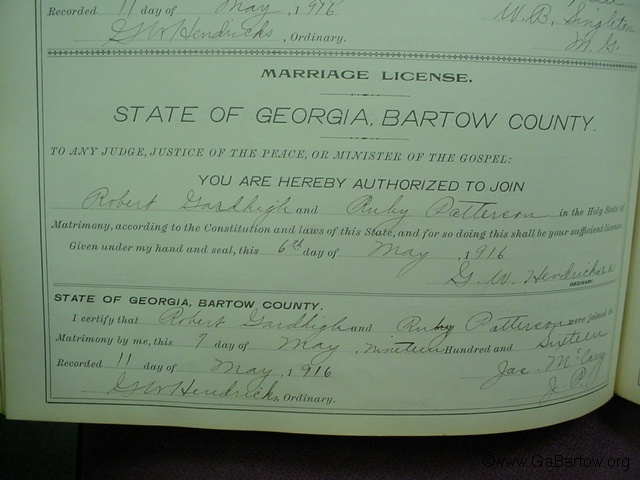 Recorded 11 day of May, 1916
W. B. Singleton
G W Hendricks, Ordinary.
M. G.
MARRIAGE LICENSE.
STATE OF GEORGIA, BARTOW COUNTY.
TO ANY JUDGE, JUSTICE OF THE PEACE, OR MINISTER OF THE GOSPEL:
YOU ARE HEREBY AUTHORIZED TO JOIN
Robert Gaddhigh and Ruby Patterson in the Holy State of
Matrimony, according to the Constitution and laws of this State, and for so doing this shall be your sufficient license.
Given under my hand and seal, this 6th day of May, 1916
G. W. Hendricks
ORDINARY.
STATE OF GEORGIA, BARTOW COUNTY.
I certify that Robert Gaddhigh and Ruby Patterson were joined in
Matrimony by me, this 7 day of May, nineteen Hundred and Sixteen
Recorded 11 day of May, 1916
Jas. McCary
G W Hendricks, Ordinary.
J. P.
©www.GaBartow.org